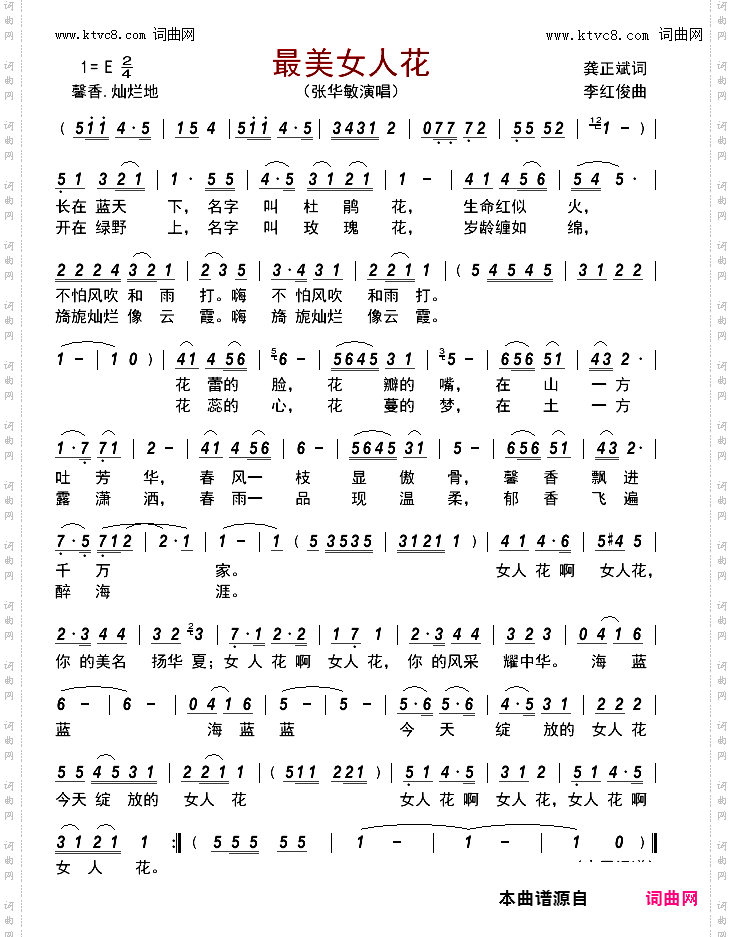 www.ktvc8.com 词曲网 www.ktvc8.com 词曲网
1=E 2/4 最美女人花 龚正斌词
馨香.灿烂地 （张华敏演唱） 李红俊曲
( 511 4·5 | 154 | 511 4·5 | 3431 2 | 077 72 | 55 52 | 12 1 - ) |
51 321 | 1· 55 | 4·5 3121 | 1 - | 41 456 | 54 5· |
长在 蓝天 下，名字 叫 杜 鹃 花， 生命红似 火，
开在 绿野 上，名字 叫 玫 瑰 花， 岁龄缠如 绵，
2224 321 | 2 35 | 3·431 2 2 | 2 1 - | ( 5 4545 | 31 22 |
不怕风吹 和 雨 打。嗨 不 怕风吹 和雨 打。
旖旎灿烂 像 云 霞。嗨 旖 旎灿烂 像云 霞。
1 - | 1 0 ) | 41 456 | 5 6 - | 5645 31 | 3 5 - | 656 51 | 43 2· |
花 蕾的 脸，花 瓣的 嘴，在 山 一方
花 蕊的 心，花 蔓的 梦，在 土 一方
1·7 71 | 2 - | 41 456 | 6 - | 5645 31 | 5 - | 656 51 | 43 2· |
吐 芳 华，春 风一 枝 显 傲 骨，馨 香 飘进
露 潇 洒，春 雨一 品 现 温 柔，郁 香 飞遍
7·5 712 | 2·1 | 1 - | ( 5 3535 | 3121 1 ) | 41 4·6 | 5#4 5 |
千 万 家。 女人 花 啊 女人花，
醉 海 涯。
2·3 44 | 32 2 3 | 7·1 2·2 | 17 1 | 2·3 44 | 32 3 | 0416 |
你 的美名 扬华 夏；女 人 花 啊 女人 花，你 的风采 耀中华。 海 蓝
6 - | 6 - | 0416 | 5 - | 5 - | 5·6 5·6 | 4·5 31 | 22 2 |
蓝 海 蓝 蓝 今 天 绽 放的 女人 花
55 4531 | 2221 | ( 511 221 ) | 51 4·5 | 31 2 | 51 4·5 |
今天 绽 放的 女人 花 女人 花 啊 女人 花，女人 花 啊
3121 1 :‖ ( 5 55 55 | 1 - | 1 - | 1 0 ) ‖
女 人 花。
本曲谱源自 词曲网
词曲网